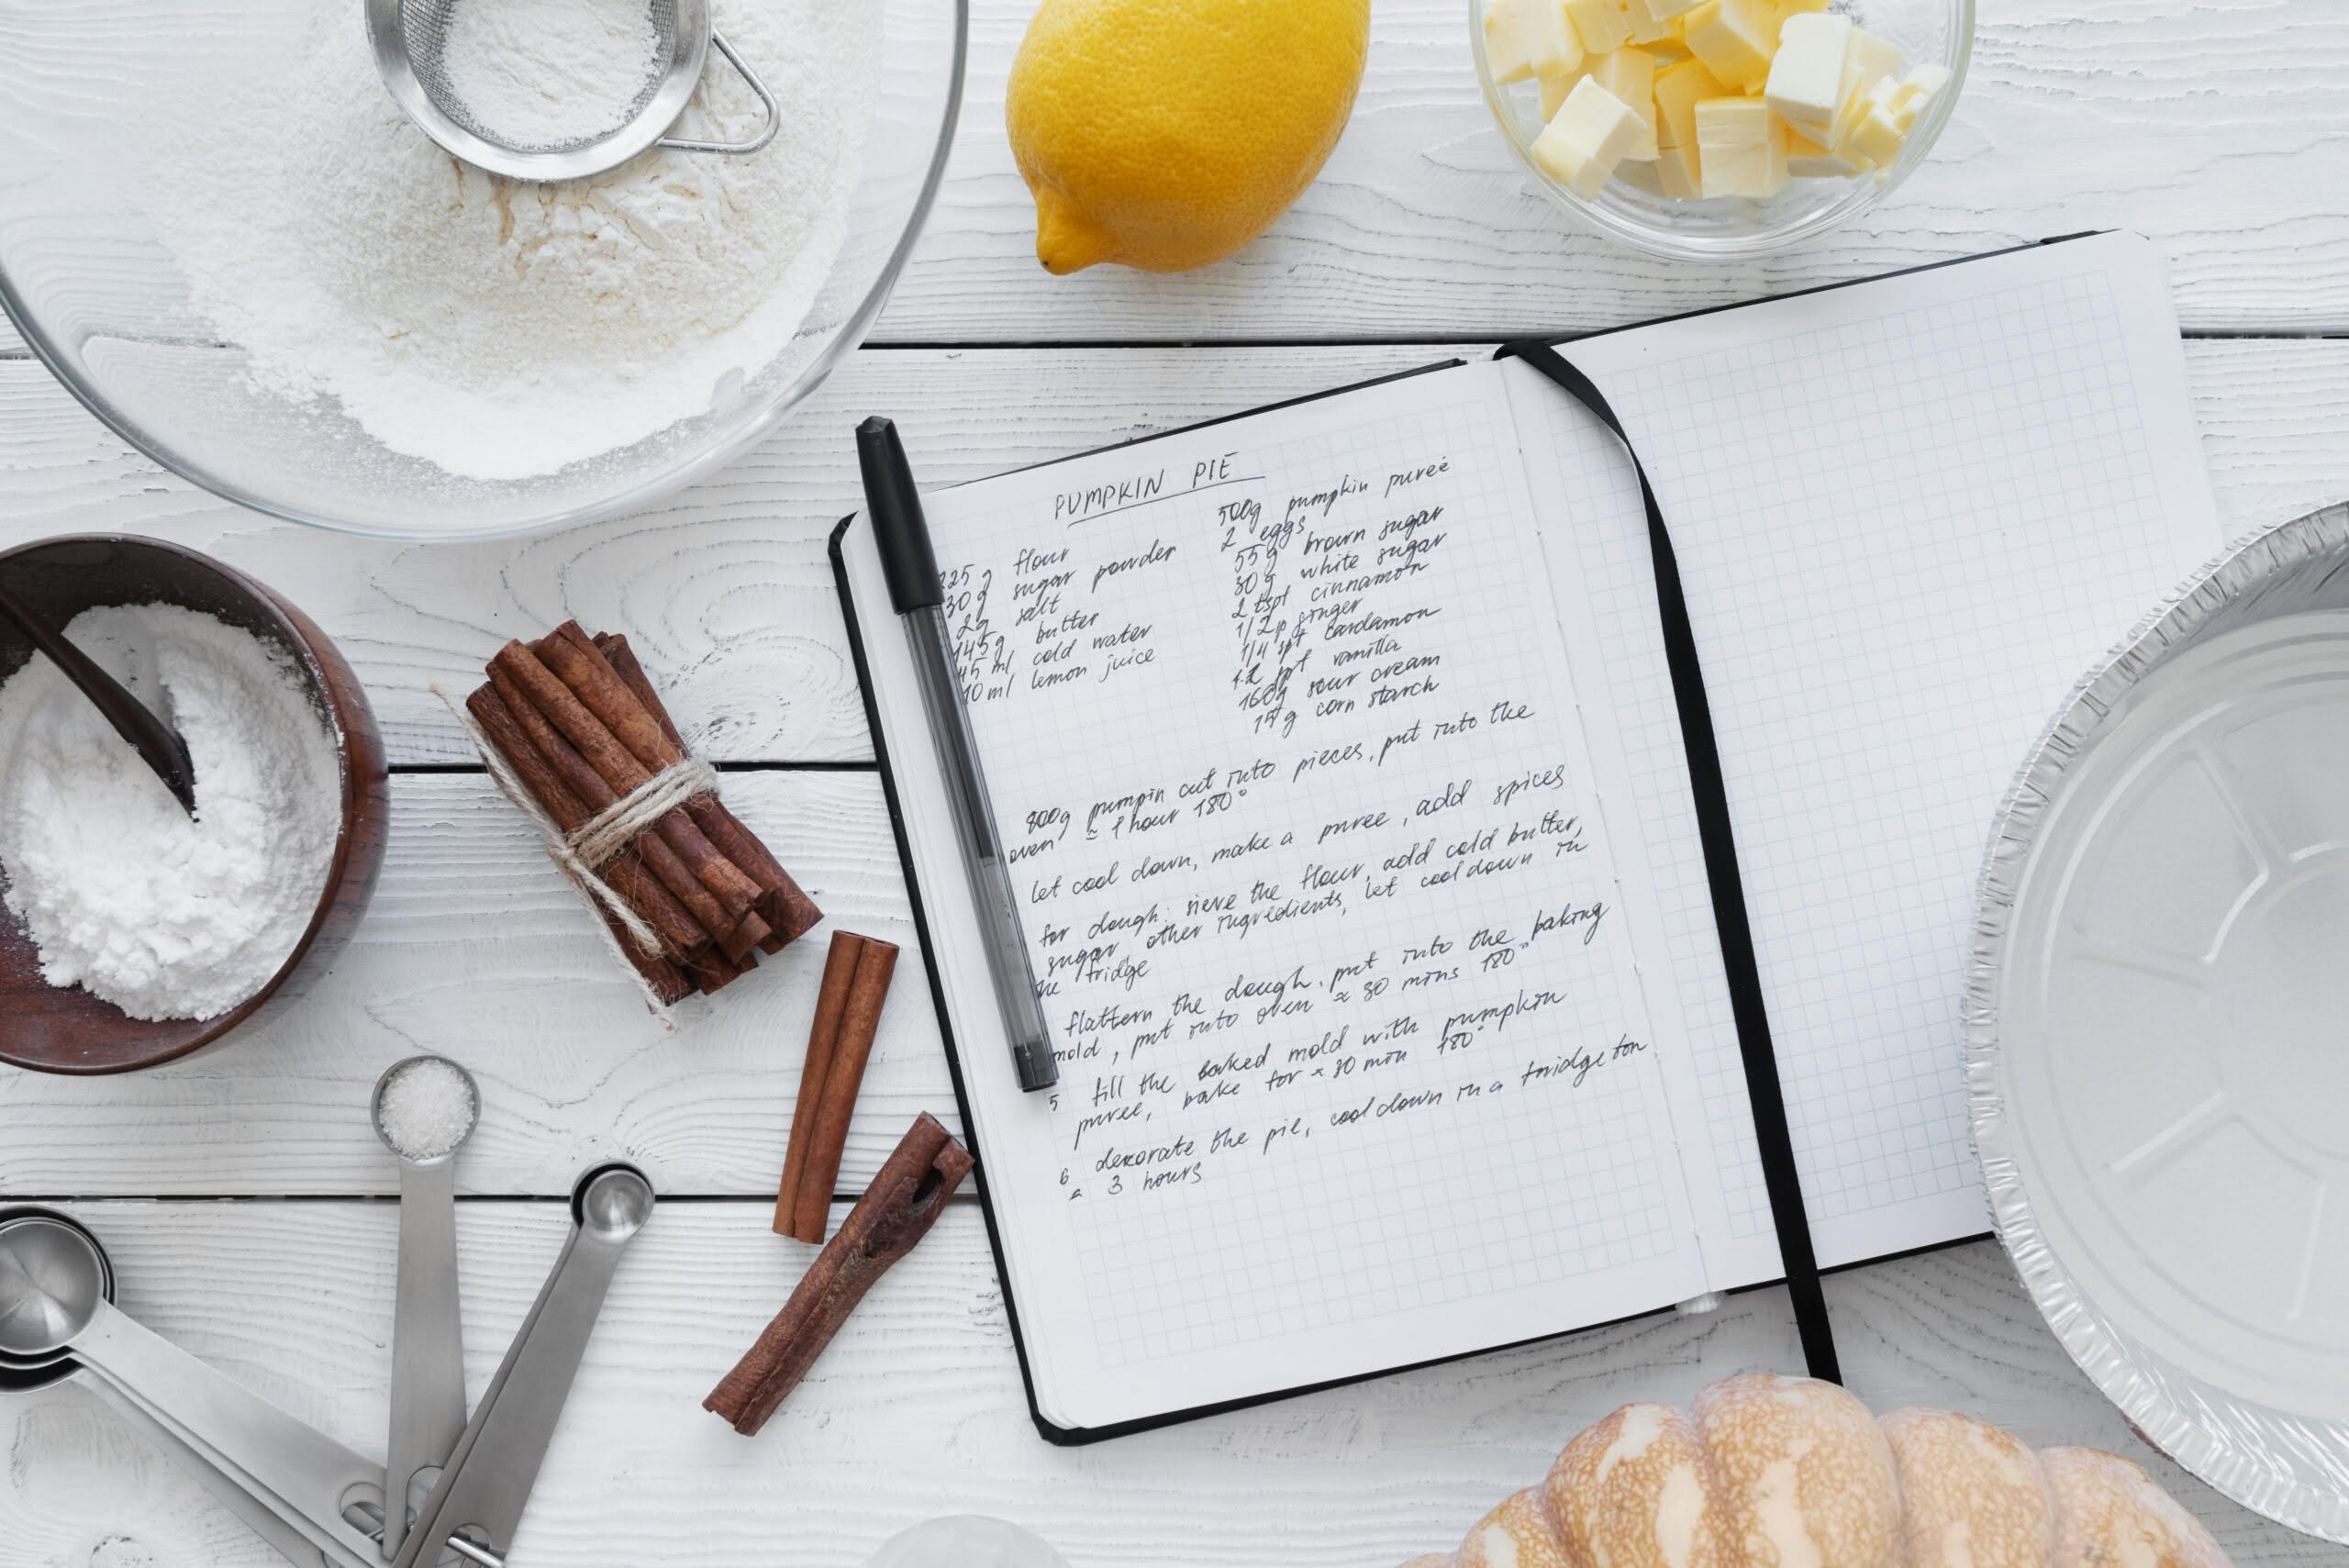 PUMPKIN PIE
225 g flour
30 g sugar powder
2g salt
145g butter
45 ml cold water
10 ml lemon juice
500g pumpkin pureé
2 eggs
55g brown sugar
30g white sugar
2 tspl cinnamon
1/2 p ginger
1/4 spt cardamon
1.2 spt vanilla
160g sour cream
15g corn starch
800g pumpin cut into pieces, put into the
oven ≈ 1 hour 180°
let cool down, make a puree, add spices
for dough: sieve the flour, add cold butter,
sugar other ingredients, let cool down in
the fridge
flattern the dough, put into the baking
mold, put into oven ≈ 30 mins 180°
5 fill the baked mold with pumpkin
puree, bake for ≈ 30 min 180°
6 dekorate the pie, cool down in a fridge for
≈ 3 hours